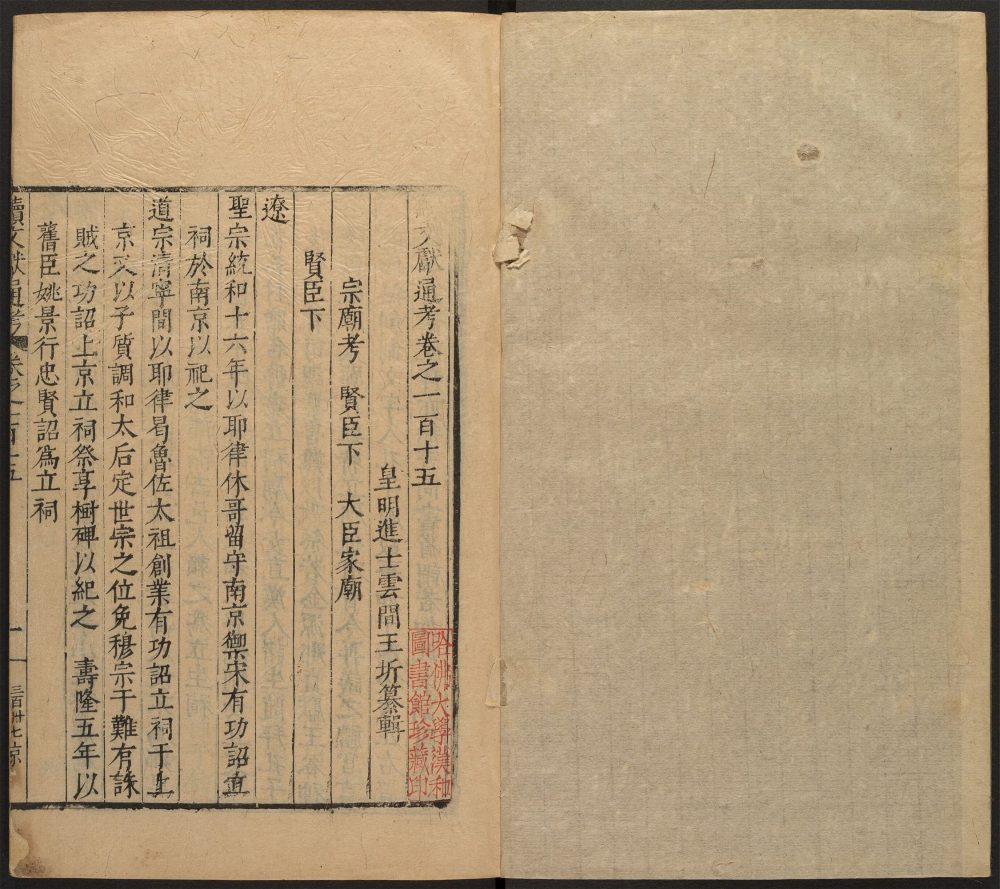 文獻通考卷之一百十五
皇明進士雲間王圻纂輯
宗廟考 賢臣下 大臣家廟
賢臣下
遼
聖宗統和十六年以耶律休哥留守南京禦宋有功詔立
祠於南京以祀之
道宗清寧間以耶律曷魯佐太祖創業有功詔立祠于上
京又以子質調和太后定世宗之位免穆宗于難有誅
賊之功詔上京立祠祭享樹碑以紀之 壽隆五年以
舊臣姚景行忠賢詔爲立祠
續文獻通考 卷之一百十五 一 三百卅七
哈佛大學漢和
圖書館珍藏印